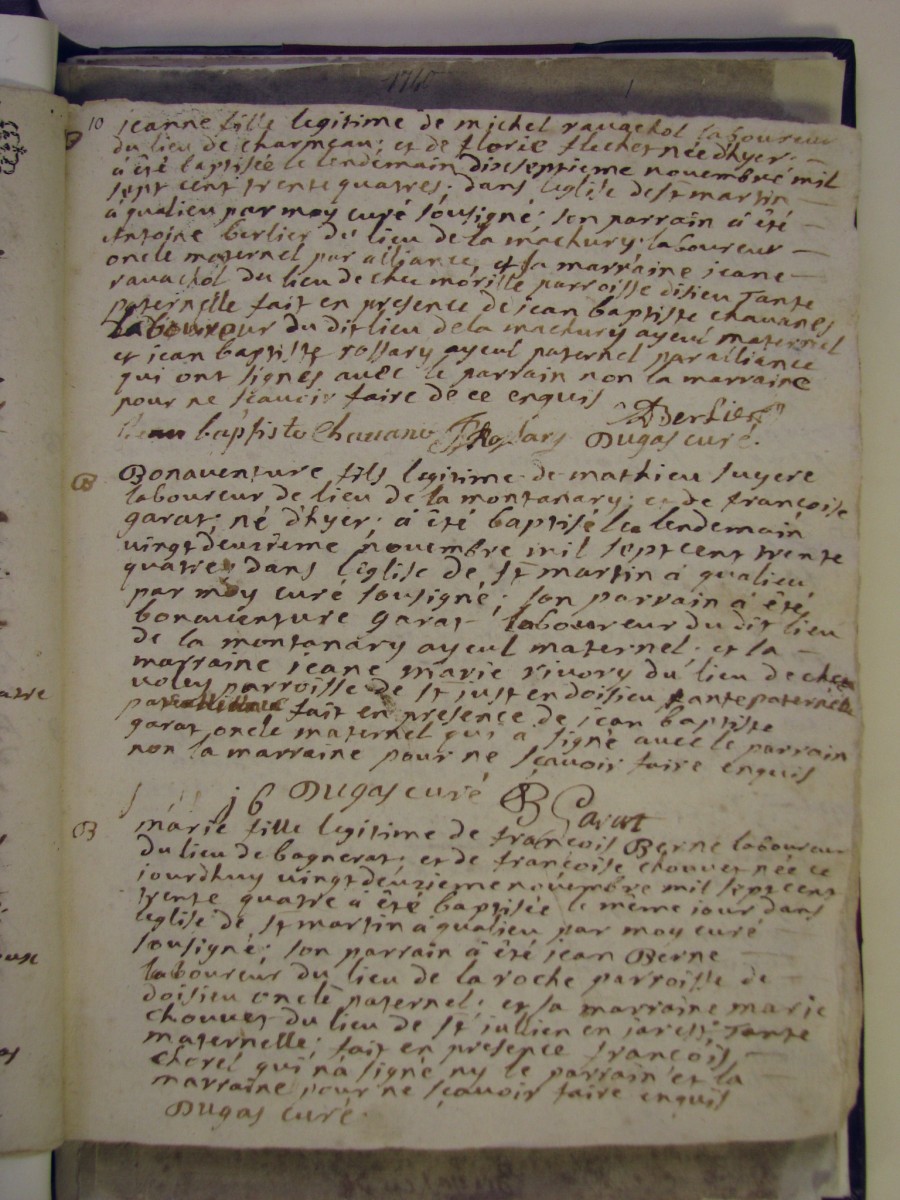 1740
10
jeanne fille legitime de michel rauachol laboureur
B du lieu de charmeau; et de florie flechet née d'hyer;
à été baptisée le lendemain dixseptieme novembre mil
sept cent trente quatres; dans l'eglise de st martin
à qualieu par moy curé sousigné; son parrain à été
Antoine berlier du lieu de la machury laboureur
oncle maternel par alliance, et sa marraine jeane
rauachol du lieu de chez morille parroisse disieu Tante
paternelle fait en presence de jean baptiste chauanes
laboureur du dit lieu de la machury ayeul maternel
et jean baptiste rossary ayeul paternel par alliance
qui ont signés auec le parrain non la marraine
pour ne sçauoir faire de ce enquis
ABerlier
baptiste Chauane Dugas curé.
B Bonauenture fils legitime de mathieu
laboureur de lieu de la montanary; et de françoise
garat; né d'hyer; à été baptisé le lendemain
vingtdeuxieme nouembre mil sept cent trente
quatre; dans l'eglise de st martin à qualieu
par moy curé sousigné; son parrain à été
bonauenture garat laboureur du dit lieu
de la montanary ayeul maternel; et la
marraine jeane marie riuory du lieu de chez
voley parroisse de st just en doisieu tante paternelle
fait en presence de jean baptiste
garat oncle maternel qui à signé auec le parrain
non la marraine pour ne sçauoir faire enquis
j b Dugas curé B Garat
B marie fille legitime de françois Berne laboureur
du lieu de bagnerat; et de françoise chouuet née ce
jourdhuy vingtdeuzieme nouembre mil sept cent
trente quatre à été baptisée le même jour dans
l'eglise de st martin à qualieu par moy curé
sousigné; son parrain à été jean Berne
laboureur du lieu de la roche parroisse de
doisieu oncle paternel; et sa marraine marie
chouuet du lieu de st jullien en jarest; Tante
maternelle; fait en presence françois
cherel qui n'a signé ny le parrain et la
marraine pour ne sçauoir faire enquis
Dugas curé.